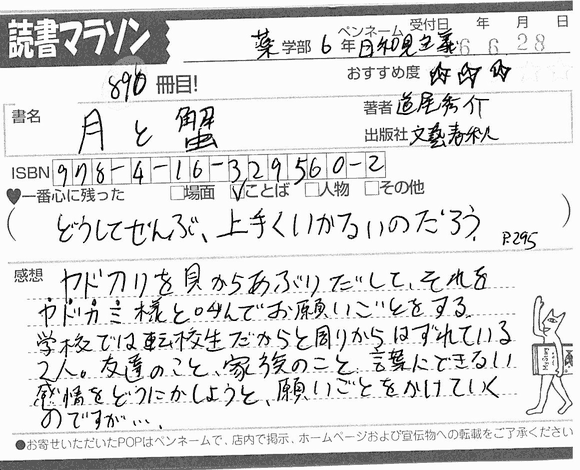 読書マラソン
薬学部 6年 ペンネーム 日和見主義 受付日 年 月 日
6 6.28
890冊目!
おすすめ度 ☆☆☆
書名 月と蟹
著者 道尾秀介
出版社 文藝春秋
ISBN 978-4-16-329560-2
♥一番心に残った □場面 ☑ことば □人物 □その他
(どうしてぜんぶ、上手くいかないのだろう。 P.295)
感想 ヤドカリを貝からあぶりだして、それを
ヤドカミ様と呼んでお願いごとをする。
学校では転校生だからと周りからはずれている
2人。友達のこと、家族のこと、言葉にできない
感情をどうにかしようと、願いごとをかけていく
のですが…。
●お寄せいただいたPOPはペンネームで、店内で掲示、ホームページおよび宣伝物への転載をご了承ください